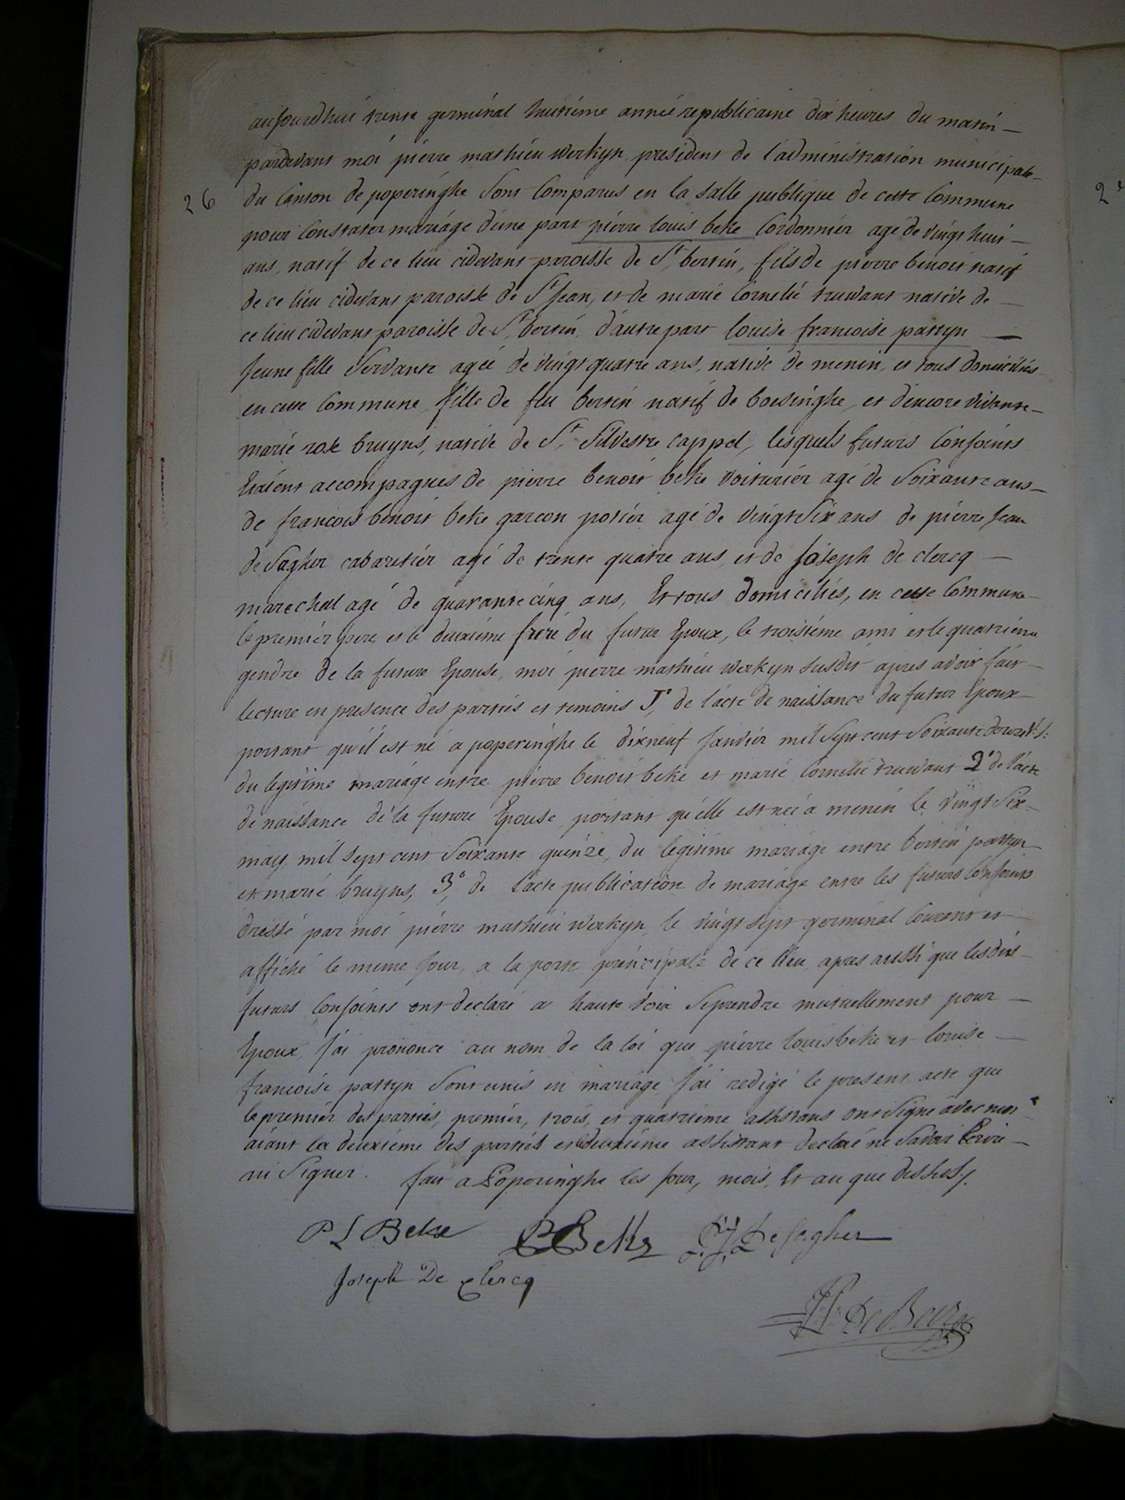 aujourdhui trente germinal huitiéme année republicaine dix heures du matin —
pardevant moi pierre mathieu werkyn president de l'administration municipale
26 du Canton de poperinghe Sont Comparus en la salle publique de cette Commune
pour Constater mariage d'une part pierre louis beke Cordonnier agé de vingt huit —
ans, natif de ce lieu cidevant paroisse de St. bertin, fils de pierre benoit natif
de ce lieu cidevant paroisse de St Jean, et de marie Cornelie truwant native de —
ce lieu cidevant paroisse de St bertin, d'autre part louise francoise pattyn —
Jeune fille Servante agée de vingt quatre ans, native de menin, et tous domiciliés
en cette Commune, fille de feu bertin natif de boesinghe, et d'encore vivante —
marie rose bruyns, native de St. Silvestre cappel, lesquels futurs Conjoints
Etaient accompagnés de pierre benoit beke voiturier agé de Soixante ans —
de francois benoit beke garcon potier agé de vingt Six ans de pierre Jean
de Sagher cabaretier agé de trente quatre ans, et de Joseph de clercq —
marechal agé de quarante cinq ans, Et tous domiciliés, en cette Commune
le premier pere et le deuxiéme frere du futur Epoux, le troisiéme ami et le quatriéme
gendre de la future Epouse, moi pierre mathieu werkyn susdit apres avoir fait —
lecture en presence des parties et temoins 1° de l'acte de naissance du futur Epoux
portant qu'il est né a poperinghe le dixneuf Janvier mil Sept cent Soixante douze
du legitime mariage entre pierre benoit beke et marie Cornelie truwant 2° de l'acte
de naissance de la future Epouse portant qu'elle est née a menin le vingt Six —
may mil Sept cent Soixante quinze, du legitime mariage entre bertin pattyn
et marie bruyns, 3° de l'acte publication de mariage entre les futurs Conjoints
dressé par moi pierre mathieu werkyn le vingt Sept germinal Courant et —
affiché le meme Jour, a la porte principale de ce lieu apres aussi que lesdits —
futurs Conjoints ont declaré a haute voix Se prendre mutuellement pour —
Epoux, J'ai prononcé au nom de la loi que pierre louis beke et louise —
francoise pattyn Sont unis en mariage J'ai redigé le present acte que
le premier des parties, premier, trois, et quatriéme assistans ont Signé avec moi
aiant la deuxiéme des parties et deuxiéme assistant declaré ne Savoir Ecrire —
ni Signer. fait a Poperinghe les Jour, mois, Et an que dessus.
P L Beke PB Beke P J De Sagher
Joseph De Clercq